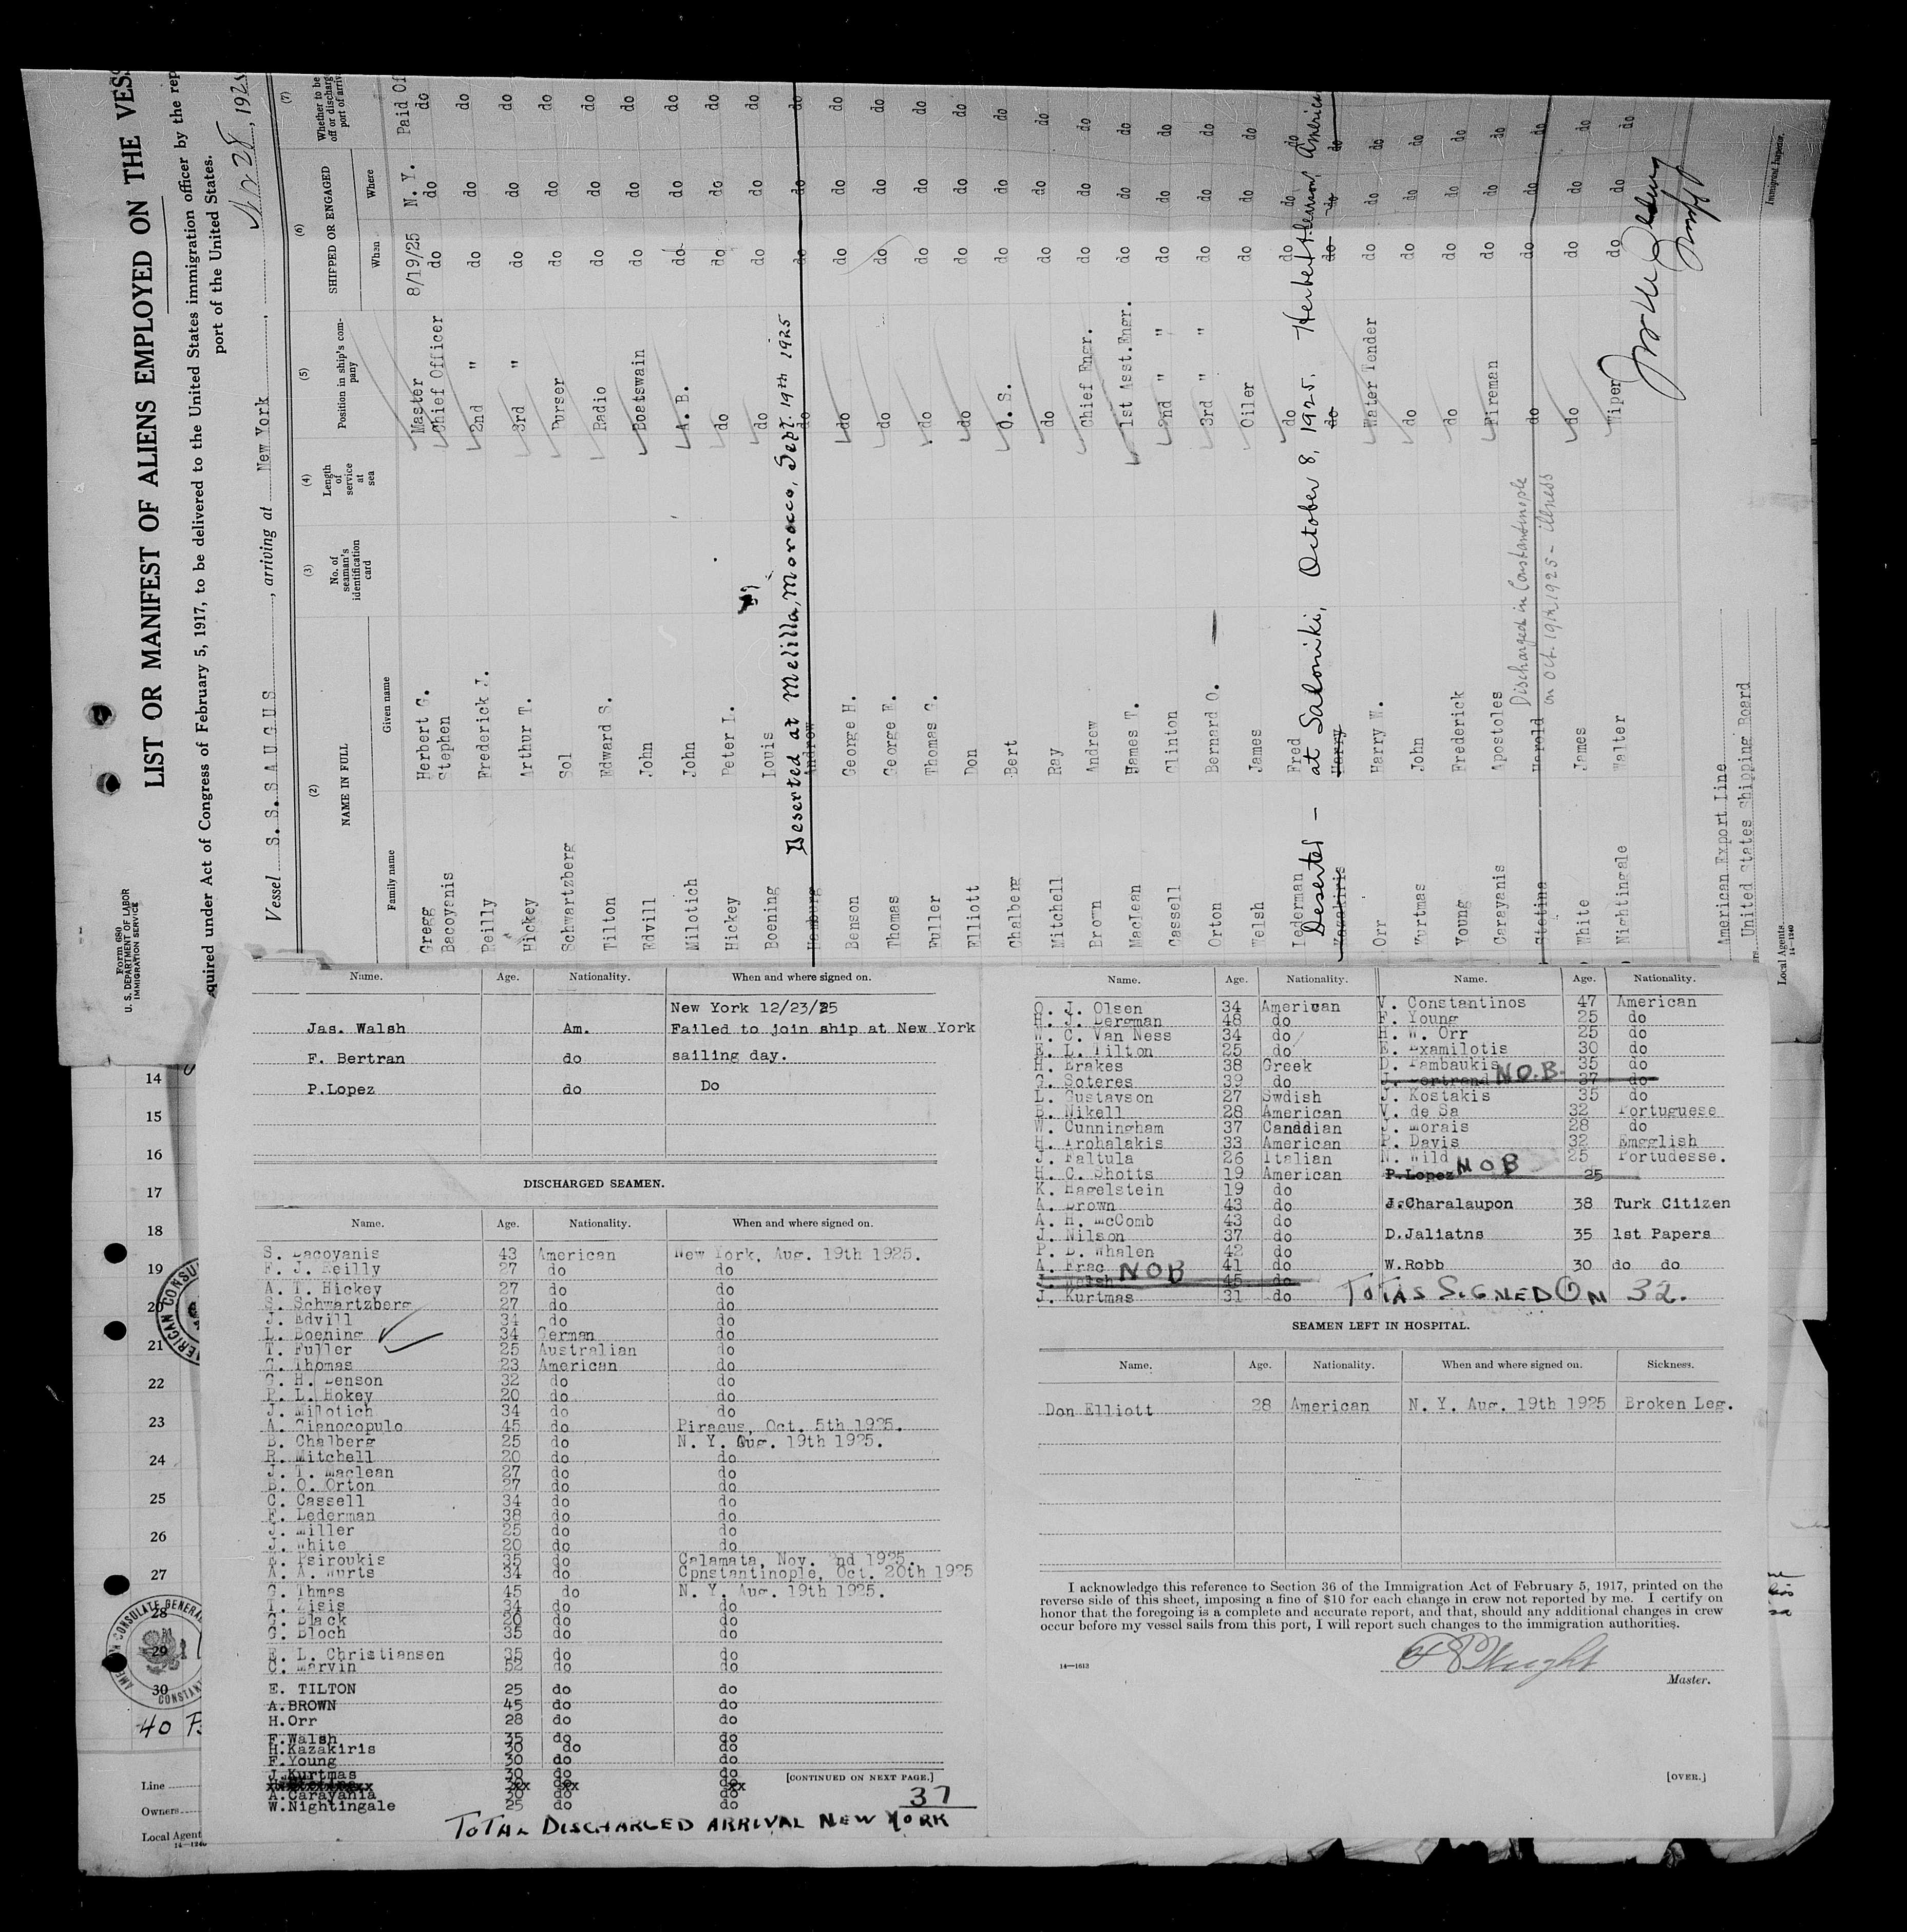 Form 680
U. S. DEPARTMENT OF LABOR
IMMIGRATION SERVICE
LIST OR MANIFEST OF ALIENS EMPLOYED ON THE VESS
quired under Act of Congress of February 5, 1917, to be delivered to the United States immigration officer by the rep
port of the United States.
Vessel S. S. SAUGUS, arriving at New York, 192
(2) (3) (4) (5) (6) (7)
NAME IN FULL No. of seaman's identification card Length of service at sea Position in ship's company SHIPPED OR ENGAGED Whether to be
Family name Given name When Where
Gregg Herbert G. Master 8/19/25 N. Y. Paid Of
Bacoyanis Stephen Chief Officer do do do
Reilly Frederick J. 2nd " do do do
Hickey Arthur T. 3rd " do do do
Schwartzberg Sol Purser do do do
Tilton Edward S. Radio do do do
Edvill John Boatswain do do do
Milotich John A. B. do do do
Hickey Peter L. do do do do
Boening Louis do do do do
Deserted at Melilla, Morocco, Sept. 19th 1925
Hamburg Andrew do do do do
Benson George H. do do do do
Thomas George E. do do do do
Fuller Thomas G. do do do do
Elliott Don do do do do
Chalberg Bert O. S. do do do
Mitchell Ray do do do do
Brown Andrew Chief Engr. do do do
MacLean James T. 1st Asst.Engr. do do do
Cassell Clinton 2nd " " do do do
Orton Bernard O. 3rd " " do do do
Welsh James Oiler do do do
Lederman Fred do do do do
Deserted - at Saloniki, October 8, 1925. Herbert America
Kazakiris Harry do do do do
Orr Harry W. Water Tender do do do
Kurtmas John do do do do
Young Frederick do do do do
Carayanis Apostoles Fireman do do do
Discharged in Constantinople
Stetina Harold do do do do
on Oct. 19th 1925 - illness
White James do do do do
Nightingale Walter Wiper do do do
American Export Line
United States Shipping Board
Local Agents.
14-1240
Immigrant Inspector.
Name. Age. Nationality. When and where signed on.
New York 12/23/25
Jas. Walsh Am. Failed to join ship at New York
F. Bertran do sailing day.
P.Lopez do Do
DISCHARGED SEAMEN.
Name. Age. Nationality. When and where signed on.
S. Bacoyanis 43 American New York, Aug. 19th 1925.
F. J. Reilly 27 do do
A. T. Hickey 27 do do
S. Schwartzberg 27 do do
J. Edvill 34 do do
L. Boening 34 German do
T. Fuller 25 Australian do
G. Thomas 23 American do
G. H. Benson 32 do do
P. L. Hokey 20 do do
J. Milotich 34 do do
A. Gianocopulo 45 do Piraeus, Oct. 5th 1925.
B. Chalberg 25 do N. Y. Oug. 19th 1925.
R. Mitchell 20 do do
J. T. Maclean 27 do do
B. O. Orton 27 do do
C. Cassell 34 do do
F. Lederman 38 do do
J. Miller 25 do do
J. White 20 do do
E. Psiroukis 35 do Calamata, Nov. 2nd 1925.
A. A. Wurts 34 do Cpnstantinople, Oct. 20th 1925
G. Thmas 45 do N. Y. Aug. 19th 1925.
T. Zisis 34 do do
G. Black 20 do do
G. Bloch 35 do do
E. L. Christiansen 35 do do
C. Marvin 52 do do
E. TILTON 25 do do
A.BROWN 45 do do
H.Orr 28 do do
F.Walsh 35 do do
H.Kazakiris 30 do do
F.Young 30 do do
J.Kurtmas 30 do do
A.Carayania 30 do do
W.Nightingale 25 do do
[CONTINUED ON NEXT PAGE.]
37
TOTAL DISCHARGED ARRIVAL NEW YORK
Name. Age. Nationality. Name. Age. Nationality.
O. J. Olsen 34 American V. Constantinos 47 American
H. J. Bergman 48 do F. Young 25 do
W. C. Van Ness 34 do H. W. Orr 25 do
E. L. Tilton 25 do E. Examilotis 30 do
H. Brakes 38 Greek D. Pambaukis 35 do
G. Soteres 39 do J. Bertrand N.O.B. 37 do
L. Gustavson 27 Swdish J. Kostakis 35 do
B. Nikell 28 American V. de Sa 32 Portuguese
W. Cunningham 37 Canadian J. Morais 28 do
H. Trohalakis 33 American P. Davis 32 Emgglish
J. Faltula 26 Italian N. Wild 25 Portudesse.
H. C. Shotts 19 American P.Lopez NOB 25
K. Hagelstein 19 do
A. Brown 43 do J.Charalaupon 38 Turk Citizen
A. H. McComb 43 do
J. Nilson 37 do D.Jaliatns 35 1st Papers
P. D. Whalen 42 do
A. Frac 41 do W.Robb 30 do do
J. Walsh NOB 45 do
J. Kurtmas 31 do TOTAS SIGNED ON 32.
SEAMEN LEFT IN HOSPITAL.
Name. Age. Nationality. When and where signed on. Sickness.
Don Elliott 28 American N. Y. Aug. 19th 1925 Broken Leg.
I acknowledge this reference to Section 36 of the Immigration Act of February 5, 1917, printed on the
reverse side of this sheet, imposing a fine of $10 for each change in crew not reported by me. I certify on
honor that the foregoing is a complete and accurate report, and that, should any additional changes in crew
occur before my vessel sails from this port, I will report such changes to the immigration authorities.
14-1613
Master.
[OVER.]
14
15
16
17
18
19
20
21
22
23
24
25
26
27
28
29
30
40
AMERICAN CONSULATE GENERAL
Line
Owners
Local Agent